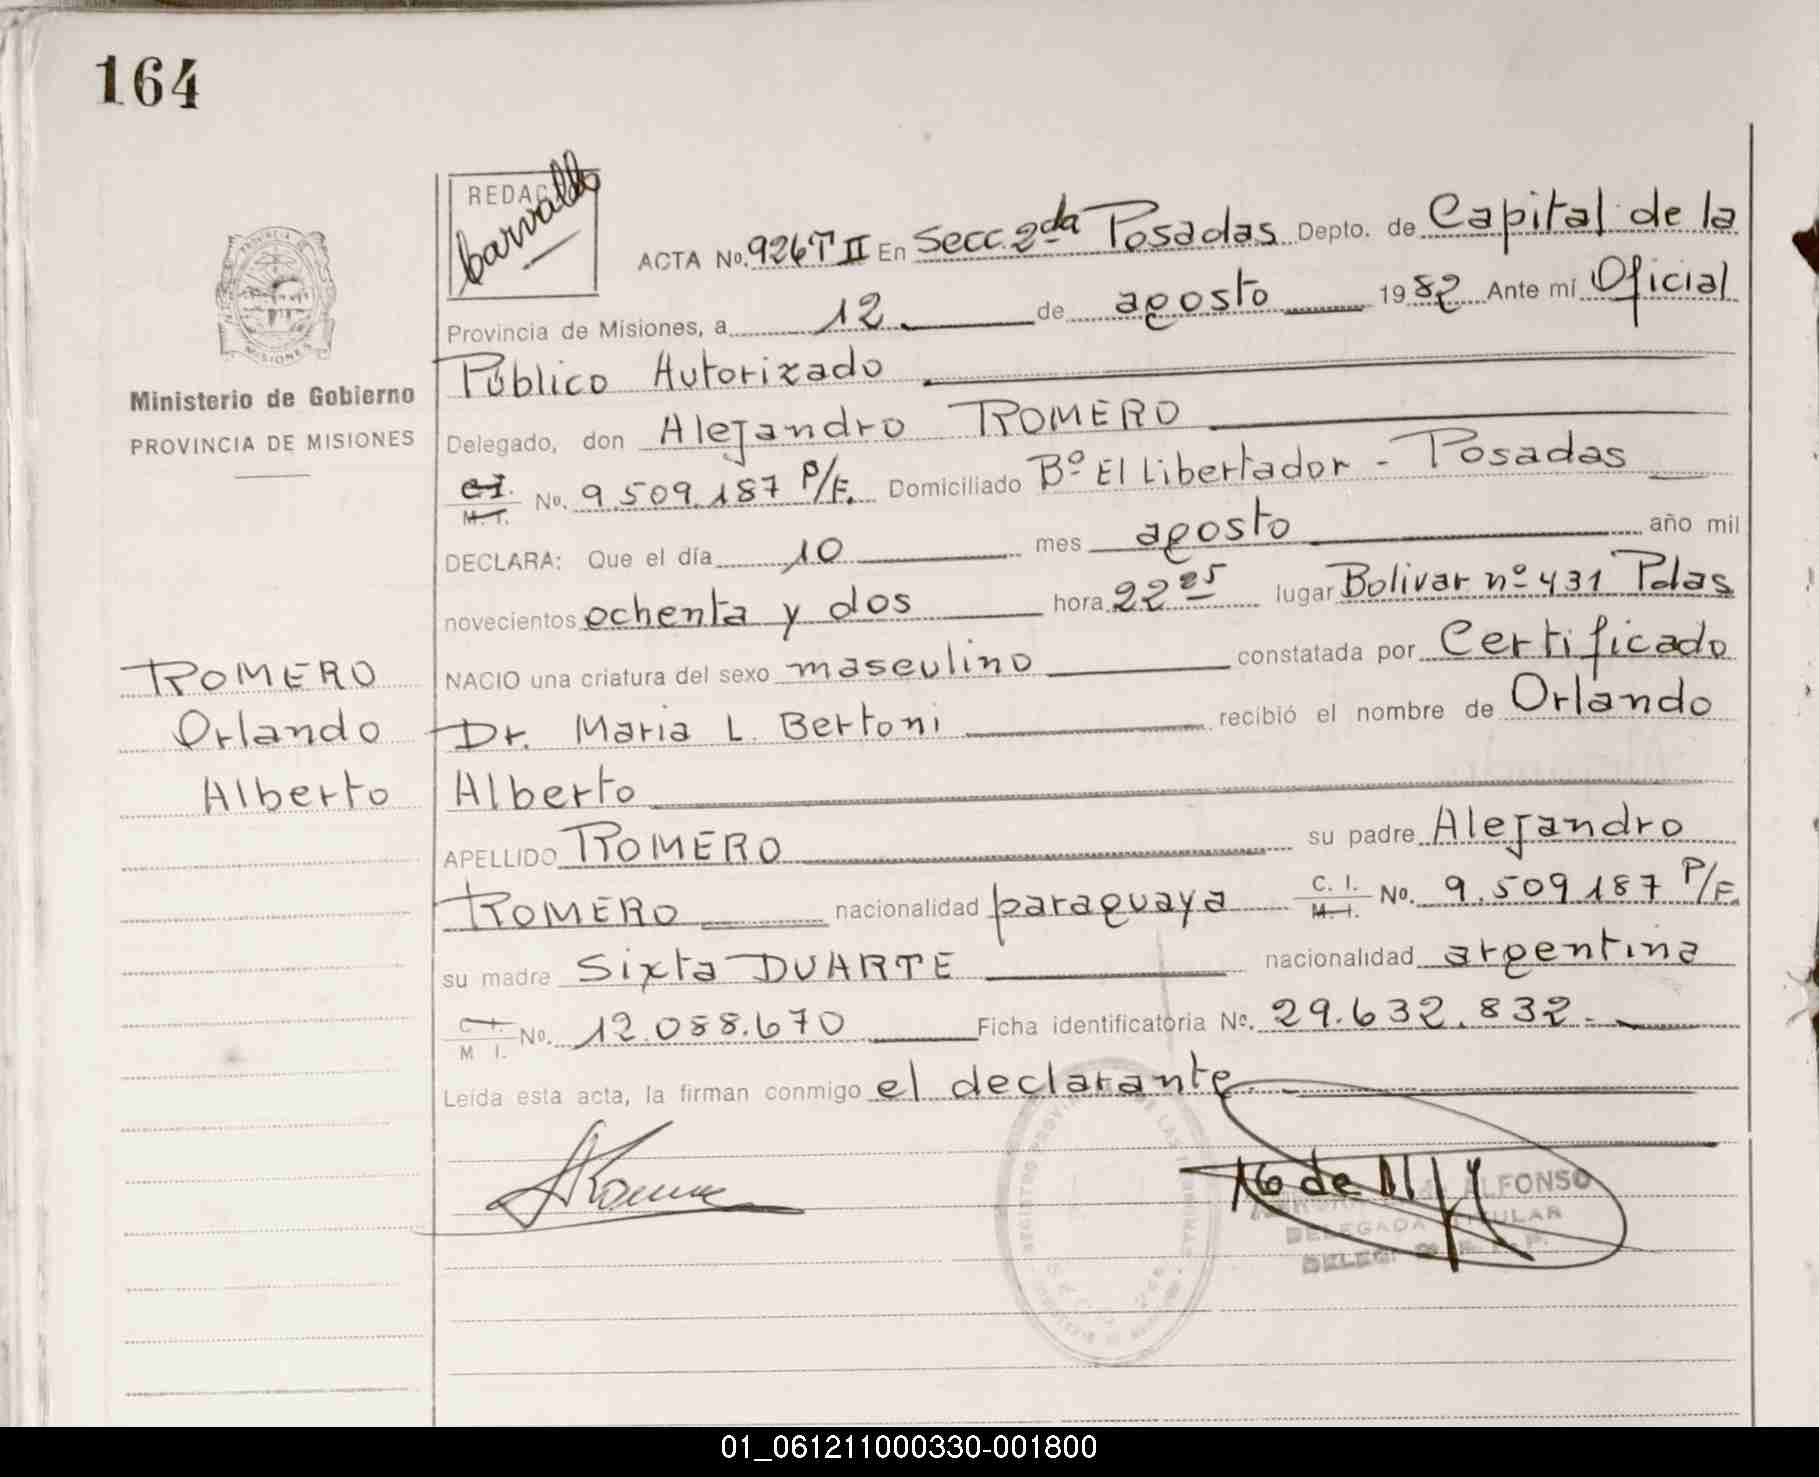 164
REDAC
Carvallo
ACTA No. 926 T II En Secc. 2da Posadas Depto. de Capital de la
Provincia de Misiones, a 12 de agosto 1982 Ante mí Oficial
Público Autorizado
Delegado, don Alejandro ROMERO
C.I. M.I. No. 9.509.187 P/F. Domiciliado Bº El Libertador - Posadas
DECLARA: Que el día 10 mes agosto año mil
novecientos ochenta y dos hora 22 25 lugar Bolivar nº 431 Pdas
NACIO una criatura del sexo masculino constatada por Certificado
Dr. Maria L. Bertoni recibió el nombre de Orlando
Alberto
APELLIDO ROMERO su padre Alejandro
ROMERO nacionalidad paraguaya C. I. M. I. No. 9.509.187 P/F.
su madre Sixta DUARTE nacionalidad argentina
C. I. M I. No. 12.088.670 Ficha identificatoria No. 29.632.832.-
Leída esta acta, la firman conmigo el declarante
MISIONES
Ministerio de Gobierno
PROVINCIA DE MISIONES
ROMERO
Orlando
Alberto
ALFONSO
DELEGADA TITULAR
01_061211000330-001800